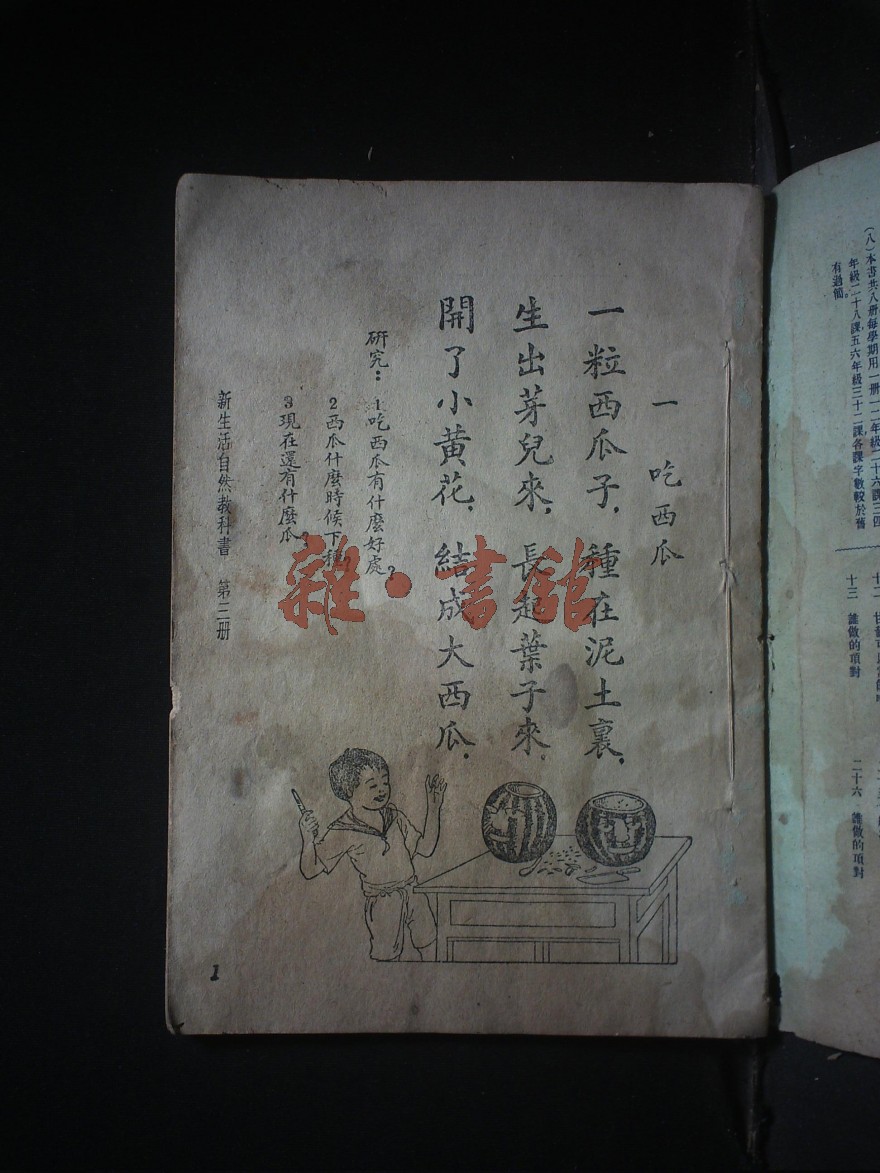 (八)本書共八册每學期用一册一二年級二十六課三四
年級二十八課五六年級三十二課各課字數較於舊
有過簡。
十三 誰做的項對
二十六 誰做的項對
一 吃西瓜
一粒西瓜子，種在泥土裏，
生出芽兒來，長起葉子來，
開了小黃花，結成大西瓜，
研究：1吃西瓜有什麼好處？
2西瓜什麼時候下種？
3現在還有什麼瓜？
新生活自然教科書 第三册
1
雜·書館